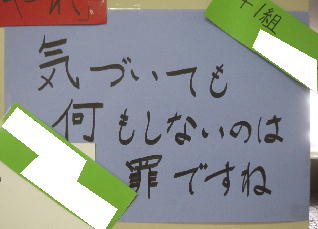 やれ」
1組
気づいても
何もしないのは
罪ですね